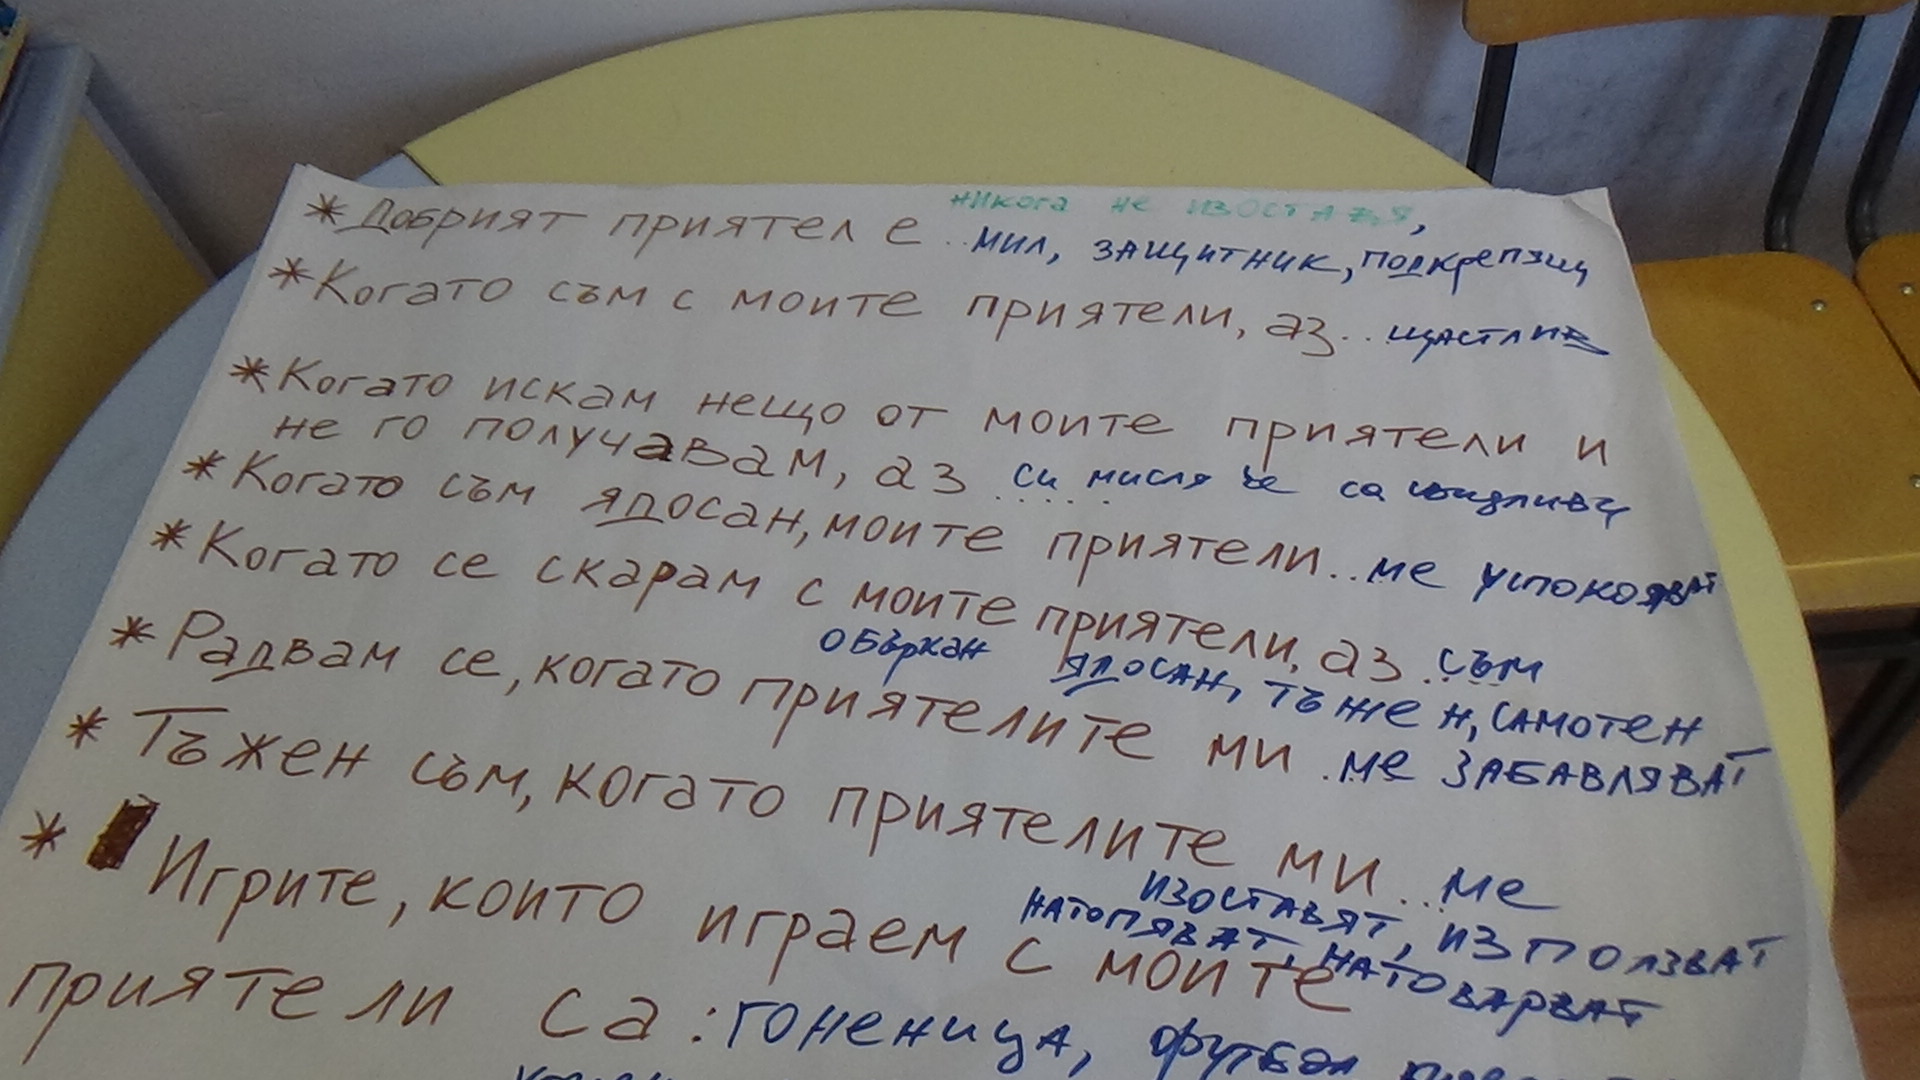 никога не изоставя,
* Добрият приятел е .. мил, защитник, подкрепящ
* Когато съм с моите приятели, аз... щастлив
* Когато искам нещо от моите приятели и
не го получавам, аз ...... си мисля че са
* Когато съм ядосан, моите приятели... ме успокояват
* Когато се скарам с моите приятели, аз ..... съм
объркан ядосан, тъжен, самотен
* Радвам се, когато приятелите ми ... ме забавляват
* Тъжен съм, когато приятелите ми ..... ме
изоставят, използват
натопяват, натоварват
* Игрите, които играем с моите
приятели са: гоненица, футбол